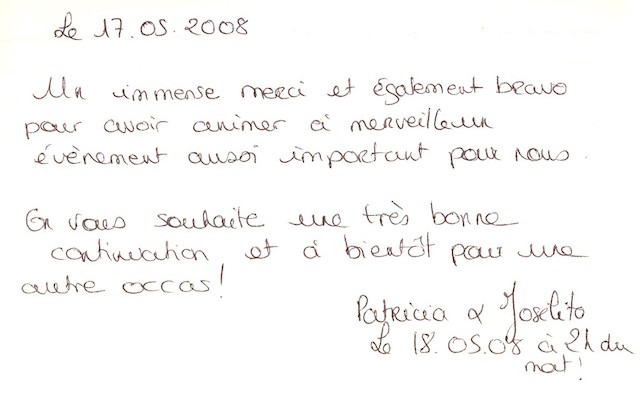 Le 17.05.2008
Un immense merci et également bravo
pour avoir animer à merveilleux
évènement aussi important pour nous.
On vous souhaite une très bonne
continuation et à bientôt pour une
autre occas!
Patricia & Joselito
Le 18.05.08 à 2h du
mat!